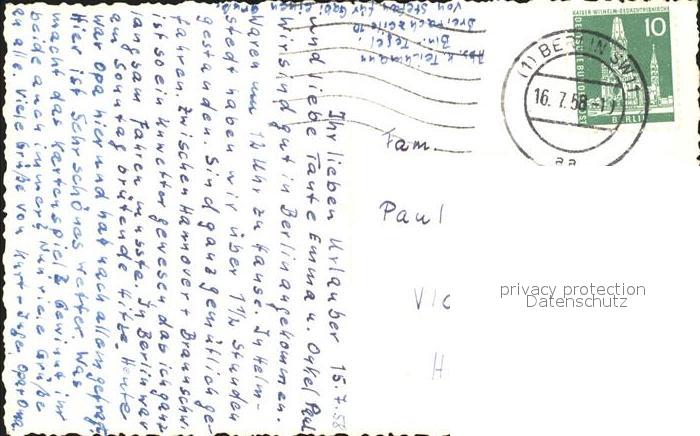 Ihr lieben Urlauber 15.7.58
und liebe Tante Emma u. Onkel Paul
Wir sind gut in Berlin angekommen.
Waren um 12 Uhr zu hause. In Helm-
stedt haben wir über 1 1/2 Stunden
gestanden. Sind ganz gemütlich ge-
fahren. Zwischen Hannover + Braunschw.
ist so ein Unwetter gewesen das ich ganz
langsam fahren musste. In Berlin war
am Sonntag brütende Hitze. Heute
war Opa hier und hat nach allem gefragt.
Hier ist sehr schönes Wetter. Was
macht das Kartenspiel? Gewinnt ihr
beide auch immer? Nun viele Grüße
an alle. Viele Grüße von Kurt + Inge Opa Oma
Abs. K. Teichmann
Bln-Tegel
von Stefan für Gabi einen
Fam.
Paul
Vic
H
KAISER-WILHELM-GEDÄCHTNISKIRCHE
10
DEUTSCHE BUNDESPOST
BERLIN
(1) BERLIN SW 11
16.7.58
aa
privacy protection
Datenschutz